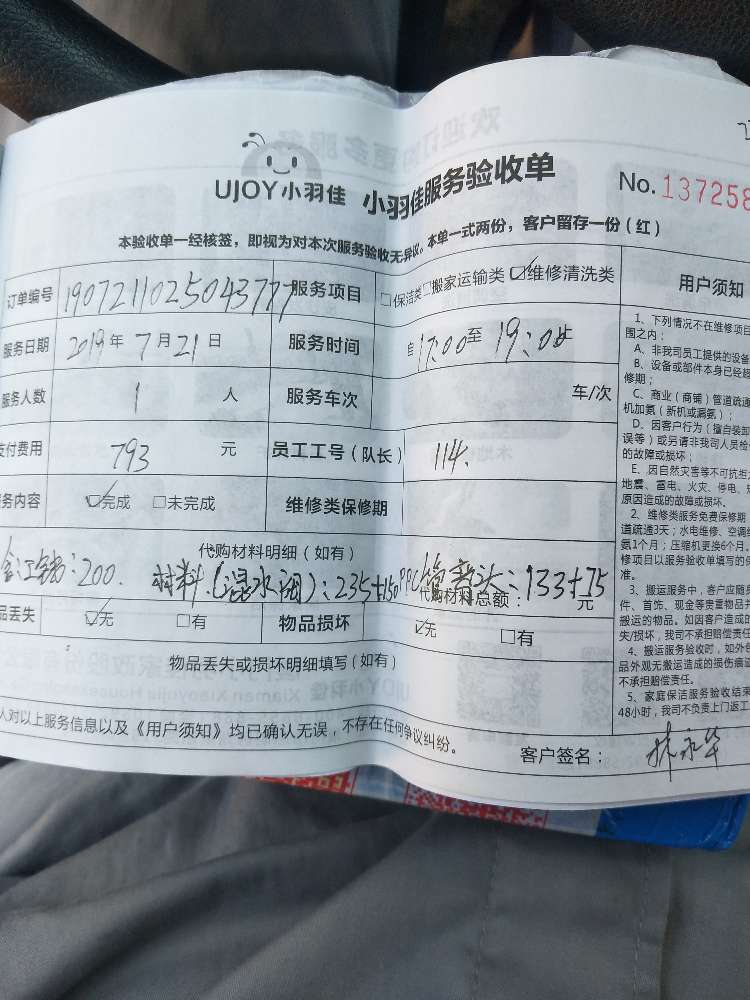 UJOY小羽佳 小羽佳服务验收单 No.137258
本验收单一经核签，即视为对本次服务验收无异议。本单一式两份，客户留存一份（红）
订单编号 1907211025043777 服务项目 □保洁类 □搬家运输类 ☑维修清洗类
服务日期 2019年7月21日 服务时间 自17:00至19:00
服务人数 1 人 服务车次 车/次
支付费用 793 元 员工工号（队长） 114.
务内容 ☑完成 □未完成 维修类保修期
代购材料明细（如有）
200. 材料(混水阀):235+150 PPC管弯头:133+75
代购材料总额： 元
品丢失 ☑无 □有 物品损坏 ☑无 □有
物品丢失或损坏明细填写（如有）
人对以上服务信息以及《用户须知》均已确认无误，不存在任何争议纠纷。
客户签名： 林永华
用户须知
1、下列情况不在维修项目
围之内：
A、非我司员工提供的设备
B、设备或部件本身已经超
修期；
C、商业（商铺）管道疏通
机加氨（新机或漏氨）；
D、因客户行为（擅自装卸
误等）或另请非我司人员检
的故障或损坏；
E、因自然灾害等不可抗拒
地震、雷电、火灾、停电、
原因造成的故障或损坏。
2、维修类服务免费保修期
道疏通3天；水电维修、空调
氨1个月；压缩机更换6个月。
修项目以服务验收单填写的保
准。
3、搬运服务中，客户应随身
件、首饰、现金等贵重物品
搬运的物品。如因客户造成的
失/损坏，我司不承担赔偿责任
4、搬运服务验收时，如外包
品外观无搬运造成的损伤痕迹
不承担赔偿责任。
5、家庭保洁服务验收结束
48小时，我司不负责上门返工